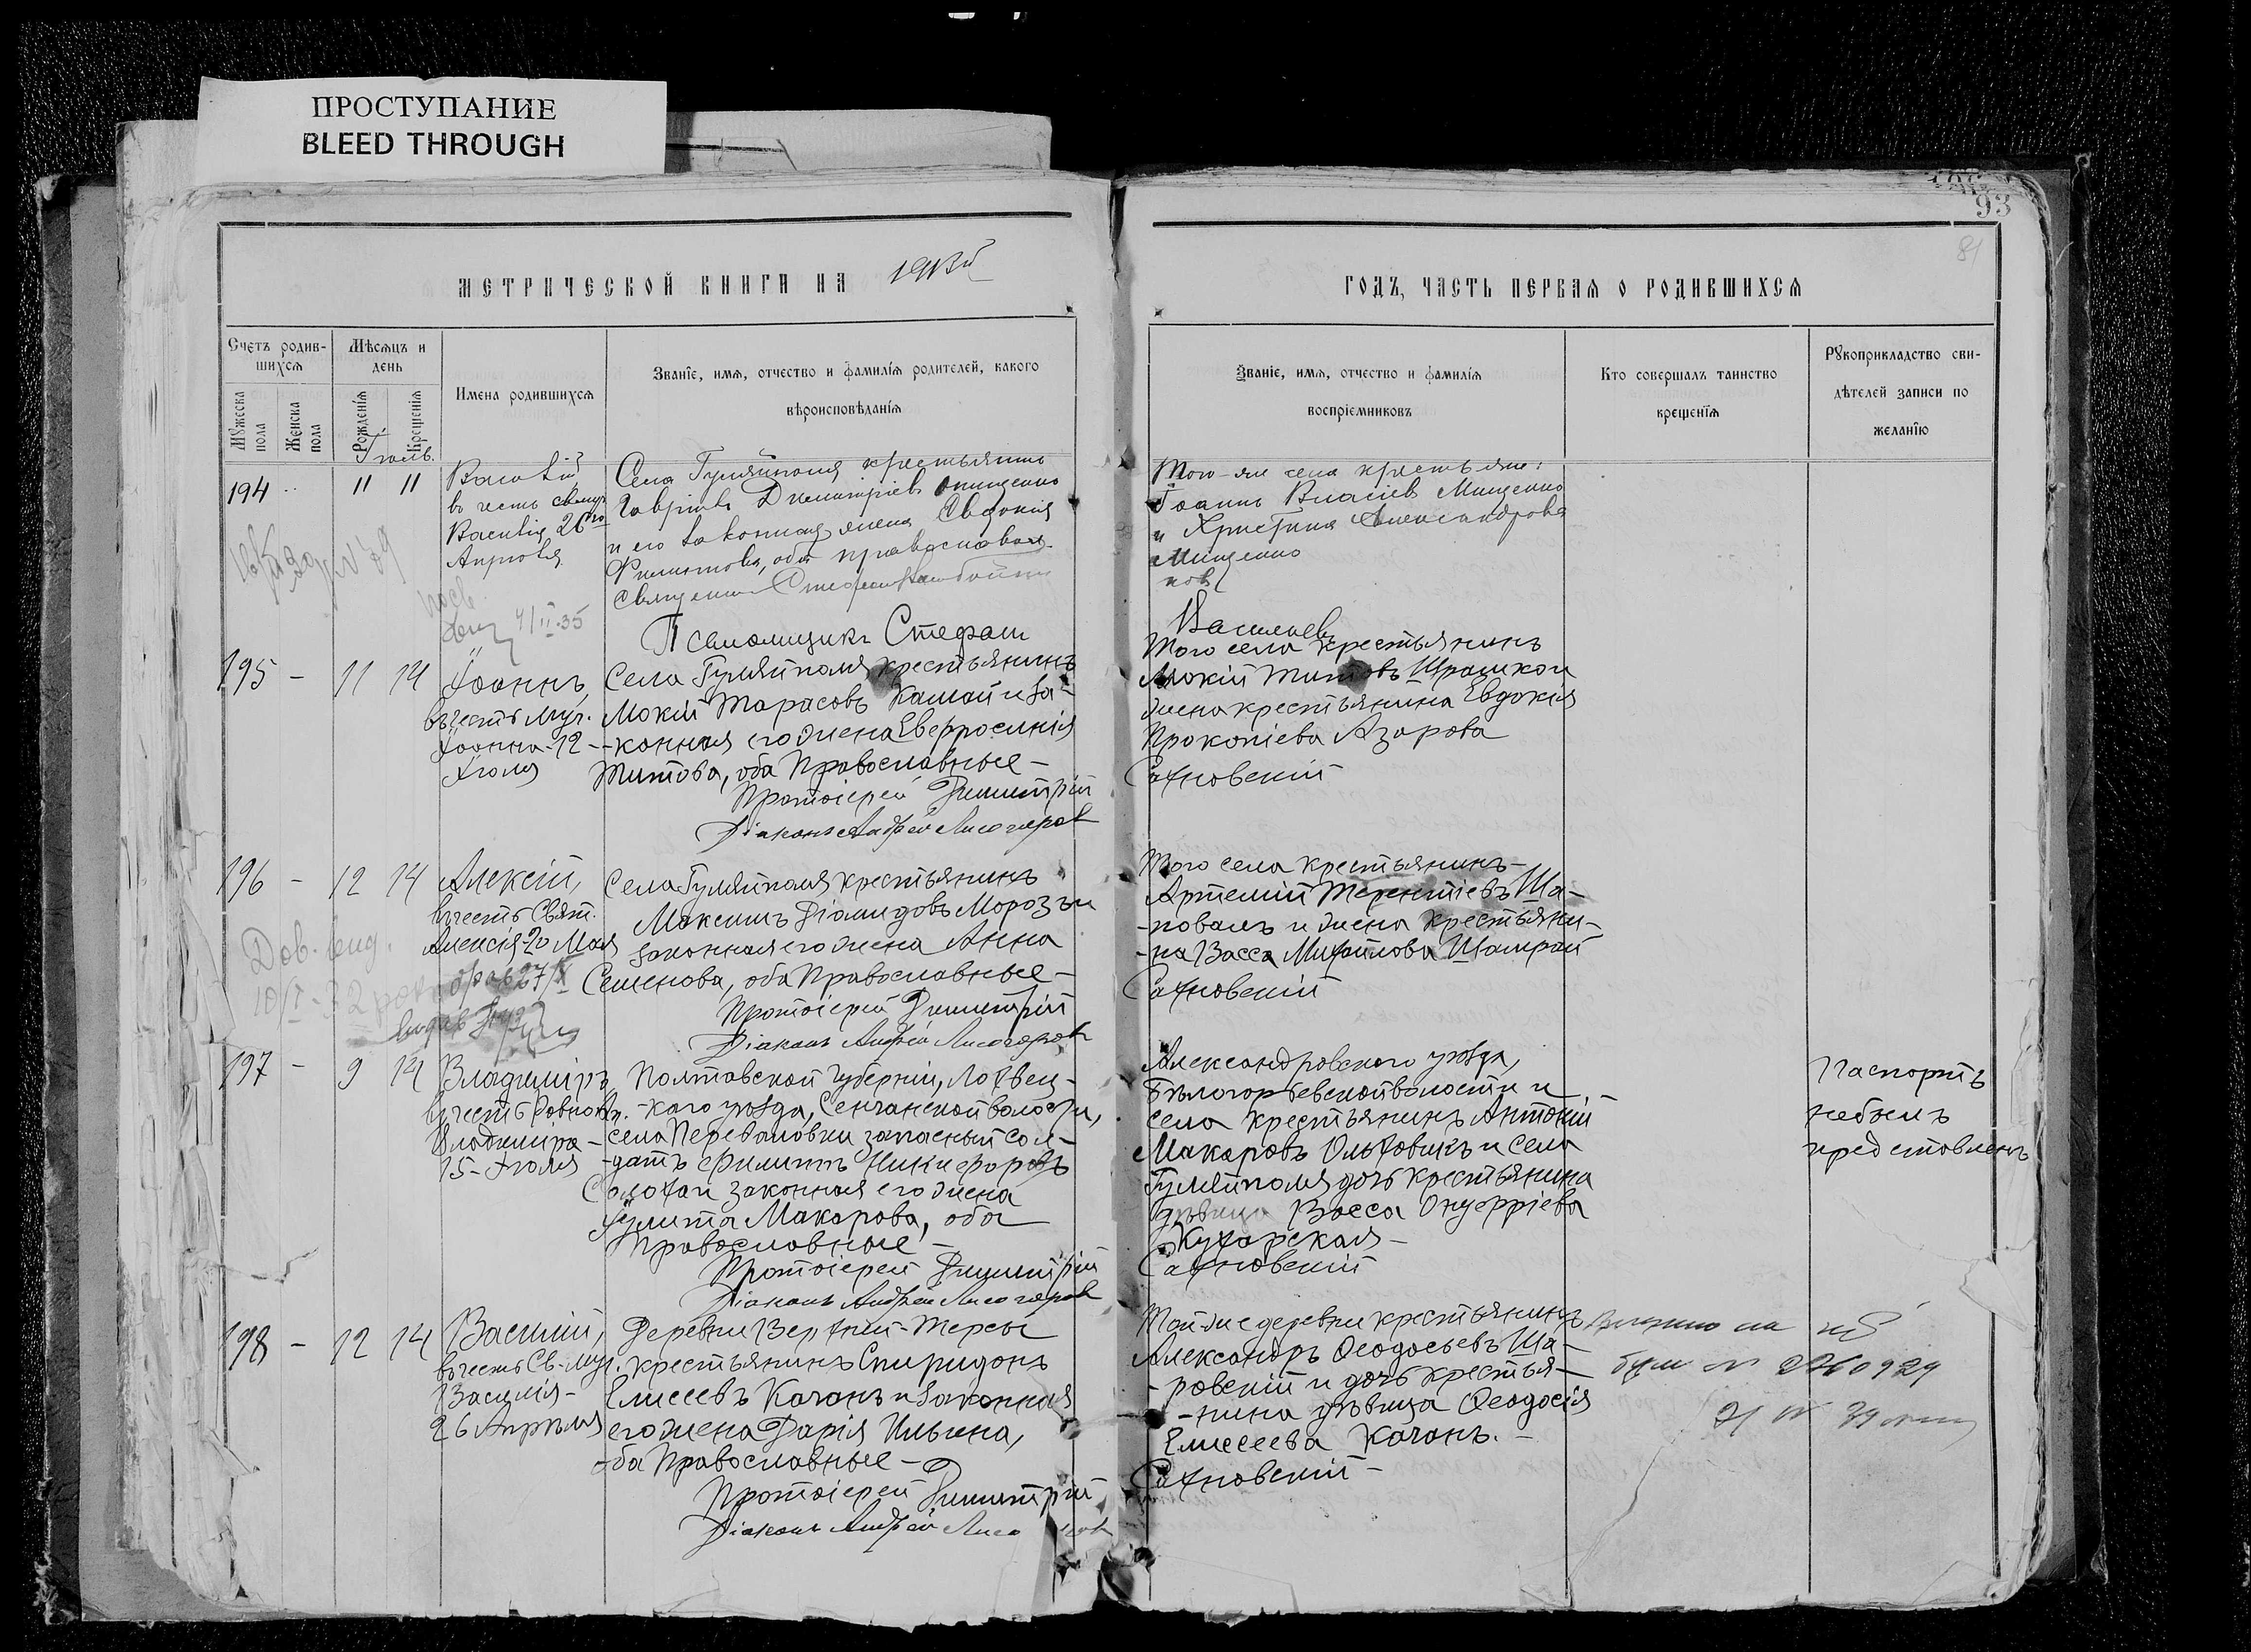 ПРОСТУПАНИЕ
BLEED THROUGH
93
81
МЕТРИЧЕСКОЙ КНИГИ НА
ГОДЪ, ЧАСТЬ ПЕРВАЯ О РОДИВШИХСЯ
Счетъ родив-
шихся
Мѣсяцъ и
день
Мужеска
пола
Женска
пола
Рожденія
Крещенія
Имена родившихся
Званіе, имя, отчество и фамилія родителей, какого
вѣроисповѣданія
Званіе, имя, отчество и фамилія
воспріемниковъ
Кто совершалъ таинство
крещенія
Рукоприкладство сви-
дѣтелей записи по
желанію
194 11 11
въ честь
Василія 26го
Апрѣля
Села Гуляйполя крестьянинъ
Гавріилъ Димитріевъ Онищенко
и его законная жена Евдокія
Филиппова, оба православн.
Священникъ Стефанъ
Псаломщикъ Стефан
Того-же села крестьяне:
Іоаннъ Власіевъ Мищенко
и Христина Александрова
Мищенко
Васильевъ
195 - 11 14
Іоаннъ,
въ честь муч.
Іоанна-12-
Іюля
Села Гуляйполя крестьянинъ
Мокій Тарасовъ Камай и за-
конная его жена Евфросинія
Титова, оба Православные-
Протоіерей Димитрій
Діаконъ Андрей Лисогоров
Того села крестьянинъ
Мокій Титовъ Шрамко и
жена крестьянина Евдокія
Прокопіева Азарова
Сахновскій
196 - 12 14
Алексій,
въ честь Свят.
Алексія-20 Мая
Дов. вид.
Села Гуляйполя крестьянинъ
Максимъ Діомидовъ Морозъ и
законная его жена Анна
Семенова, оба Православные-
Протоіерей Димитрій
Діаконъ Андрей Лисогоров
Того села крестьянинъ-
Артемій Терентіевъ Ша-
-повалъ и жена крестьяни-
-на Васса Михайлова Шамрай
Сахновскій
197 - 9 14
Владиміръ
въ честь Равноап.
Владиміра-
15-Іюля
Полтавской губерніи, Лохвец-
-каго уѣзда, Сенчанской волости,
села Переваловки запасный сол-
-датъ Филиппъ Никифоровъ
Солоха и законная его жена
Іулита Макарова, оба
Православные-
Протоіерей Димитрій
Діаконъ Андрей Лисогоров
Александровскаго уѣзда,
Бѣлогорьевской волости и
села крестьянинъ Антоній
Макаровъ Ольховикъ и села
Гуляйполя дочь крестьянина
дѣвица Васса Онуфріева
Кухарская-
Сахновскій
Паспортъ
небылъ
представленъ
198 - 12 14
Василій,
въ честь Св. муч.
Василія-
26 Апрѣля
Деревни Верхній-Терсы
крестьянинъ Спиридонъ
Елисеевъ Качанъ и законная
его жена Дарія Ильина,
оба Православные-
Протоіерей Димитрій
Діаконъ Андрей Лисо
Той-же деревни крестьянинъ
Александръ Ѳеодосьевъ Ша-
-ровскій и дочь крестья-
-нина дѣвица Ѳеодосія
Елисеева Качанъ.-
Сахновскій-